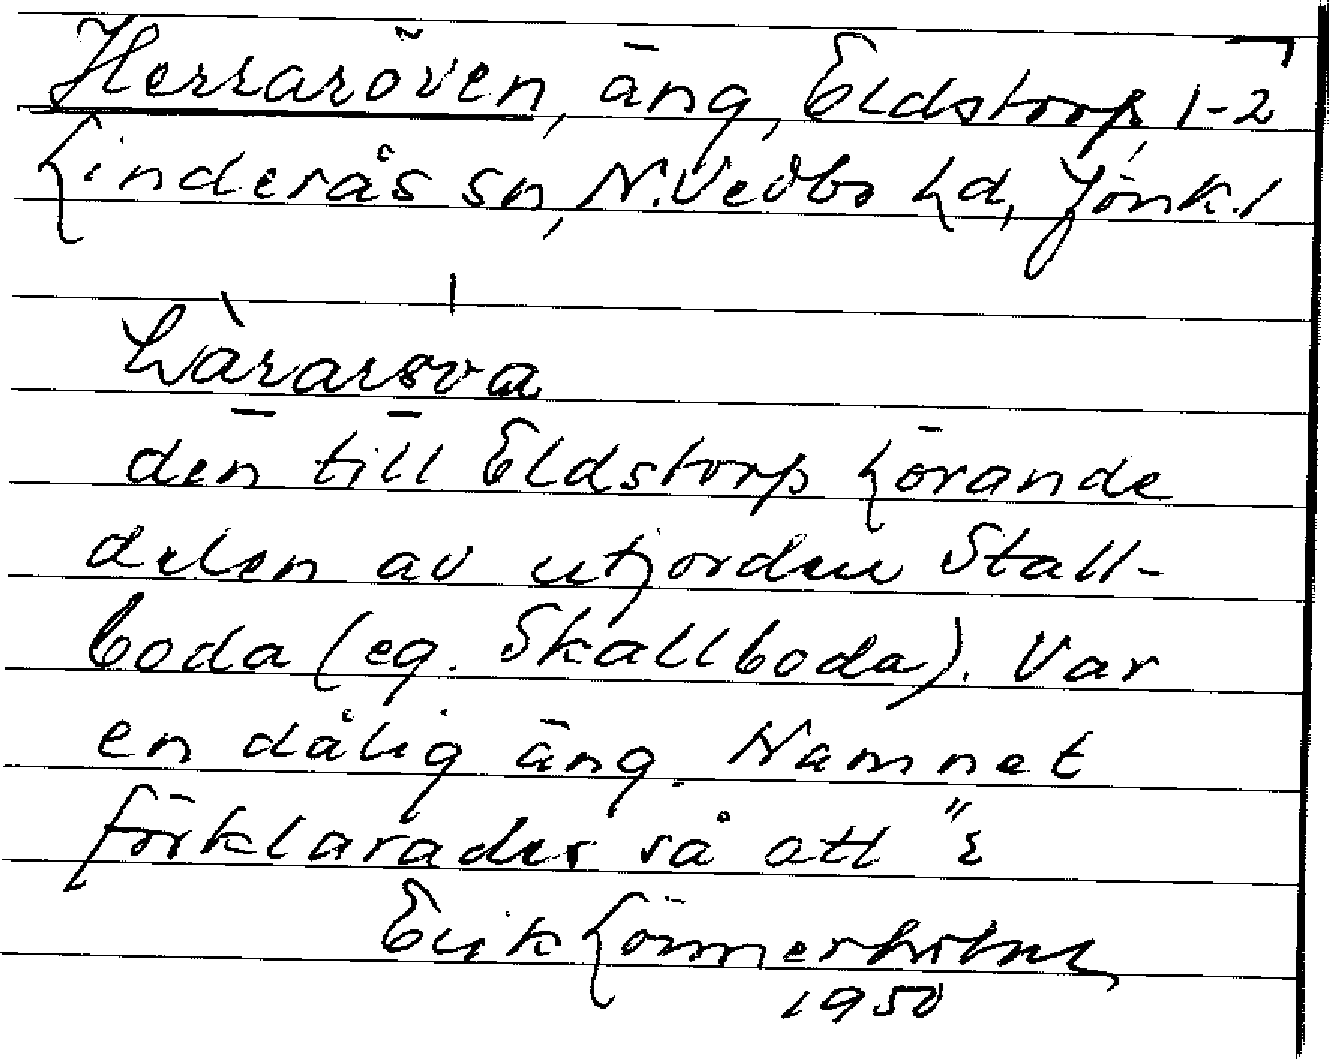 Herraröven, äng, Eldstorp, 1-2
Linderås sn, N. Vedbo hd, Jönk. l
hàrarøva
den till Eldstorp hörande
delen av utjorden Stall-
boda (eg. Skallboda). Var
en dålig äng. Namnet
förklarades så att "ε
Erik Lönnerholm
1950